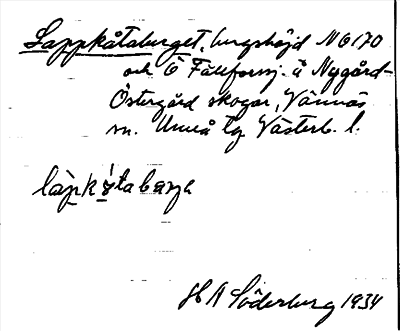 Lappkåtaberget, bergshöjd NO 170
och Ö Fällforsj. å Nygård-
Östergård skogar, Vännäs
sn. Umeå tg Västerb. l.
H A Söderberg 1934